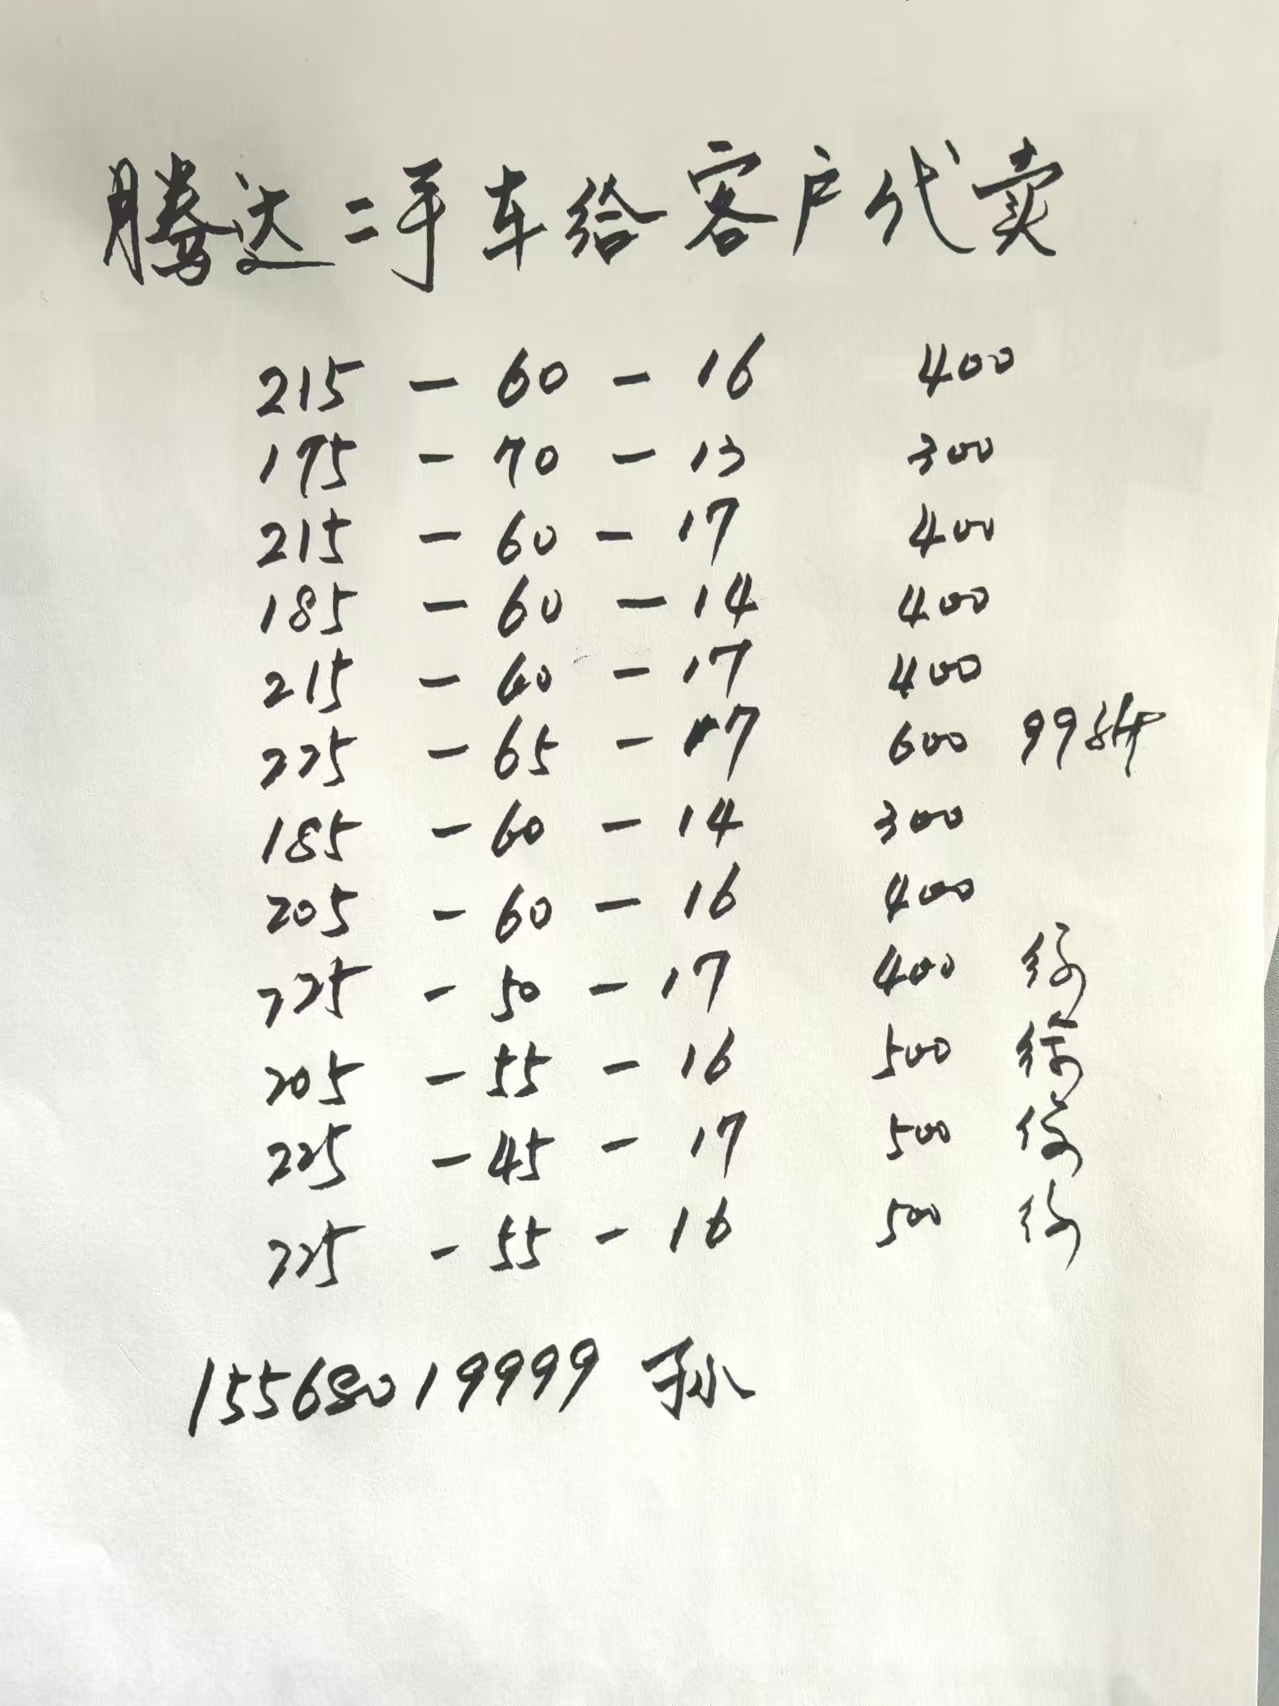 腾达二手车给客户代卖
215 - 60 - 16 400
175 - 70 - 13 300
215 - 60 - 17 400
185 - 60 - 14 400
215 - 60 - 17 400
225 - 65 - 17 600 99新
185 - 60 - 14 300
205 - 60 - 16 400
225 - 50 - 17 400
205 - 55 - 16 500
225 - 45 - 17 500
225 - 55 - 16 500
15568019999 孙